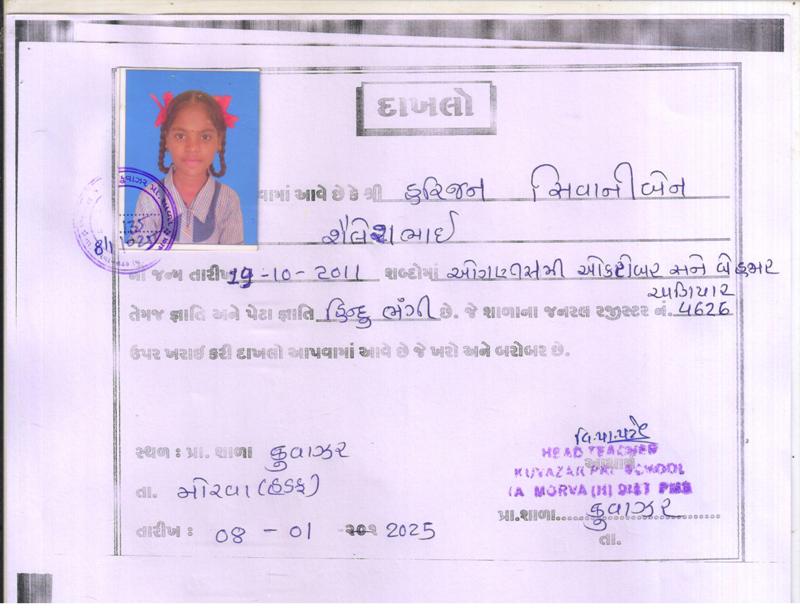 દાખલો
વામાં આવે છે કે શ્રી હરિજન સિવાનીબેન
શૈલેશભાઈ
ના જન્મ તારીખ 19-10-2011 શબ્દોમાં ઓગણીસમી ઓકટોબર અને બે હજાર
અગિયાર
તેમજ જ્ઞાતિ અને પેટા જ્ઞાતિ હિન્દુ ભંગી છે. જે શાળાના જનરલ રજીસ્ટર નં. 4626
ઉપર ખરાઈ કરી દાખલો આપવામાં આવે છે જે ખરો અને બરોબર છે.
સ્થળ : પ્રા. શાળા કુવાઝર
તા. મોરવા (હડફ)
તારીખ : 08 - 01 - 201 2025
વિ.પા.પટેલ
HEAD TEACHER
આચાર્ય
KUVAZAR PRI SCHOOL
TA MORVA (H) DIST PMS
પ્રા.શાળા કુવાઝર
તા.